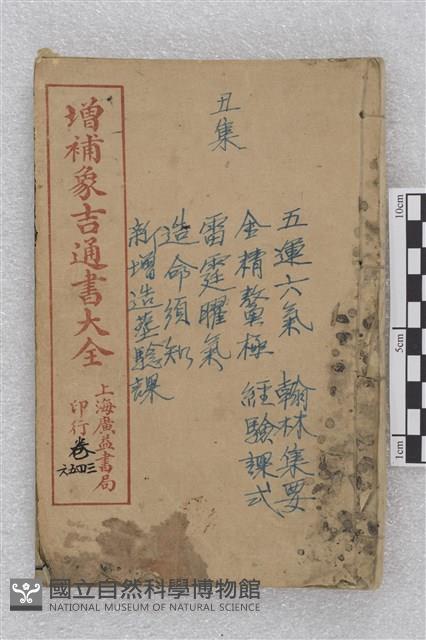 丑集
五運六氣 翰林集要
金精鰲極 經驗課式
雷霆曜氣
造命須知
新增造塟驗課
增補象吉通書大全
上海廣益書局
印行
卷三四五六
10cm
5cm
1cm
國立自然科學博物館
NATIONAL MUSEUM OF NATURAL SCIENCE